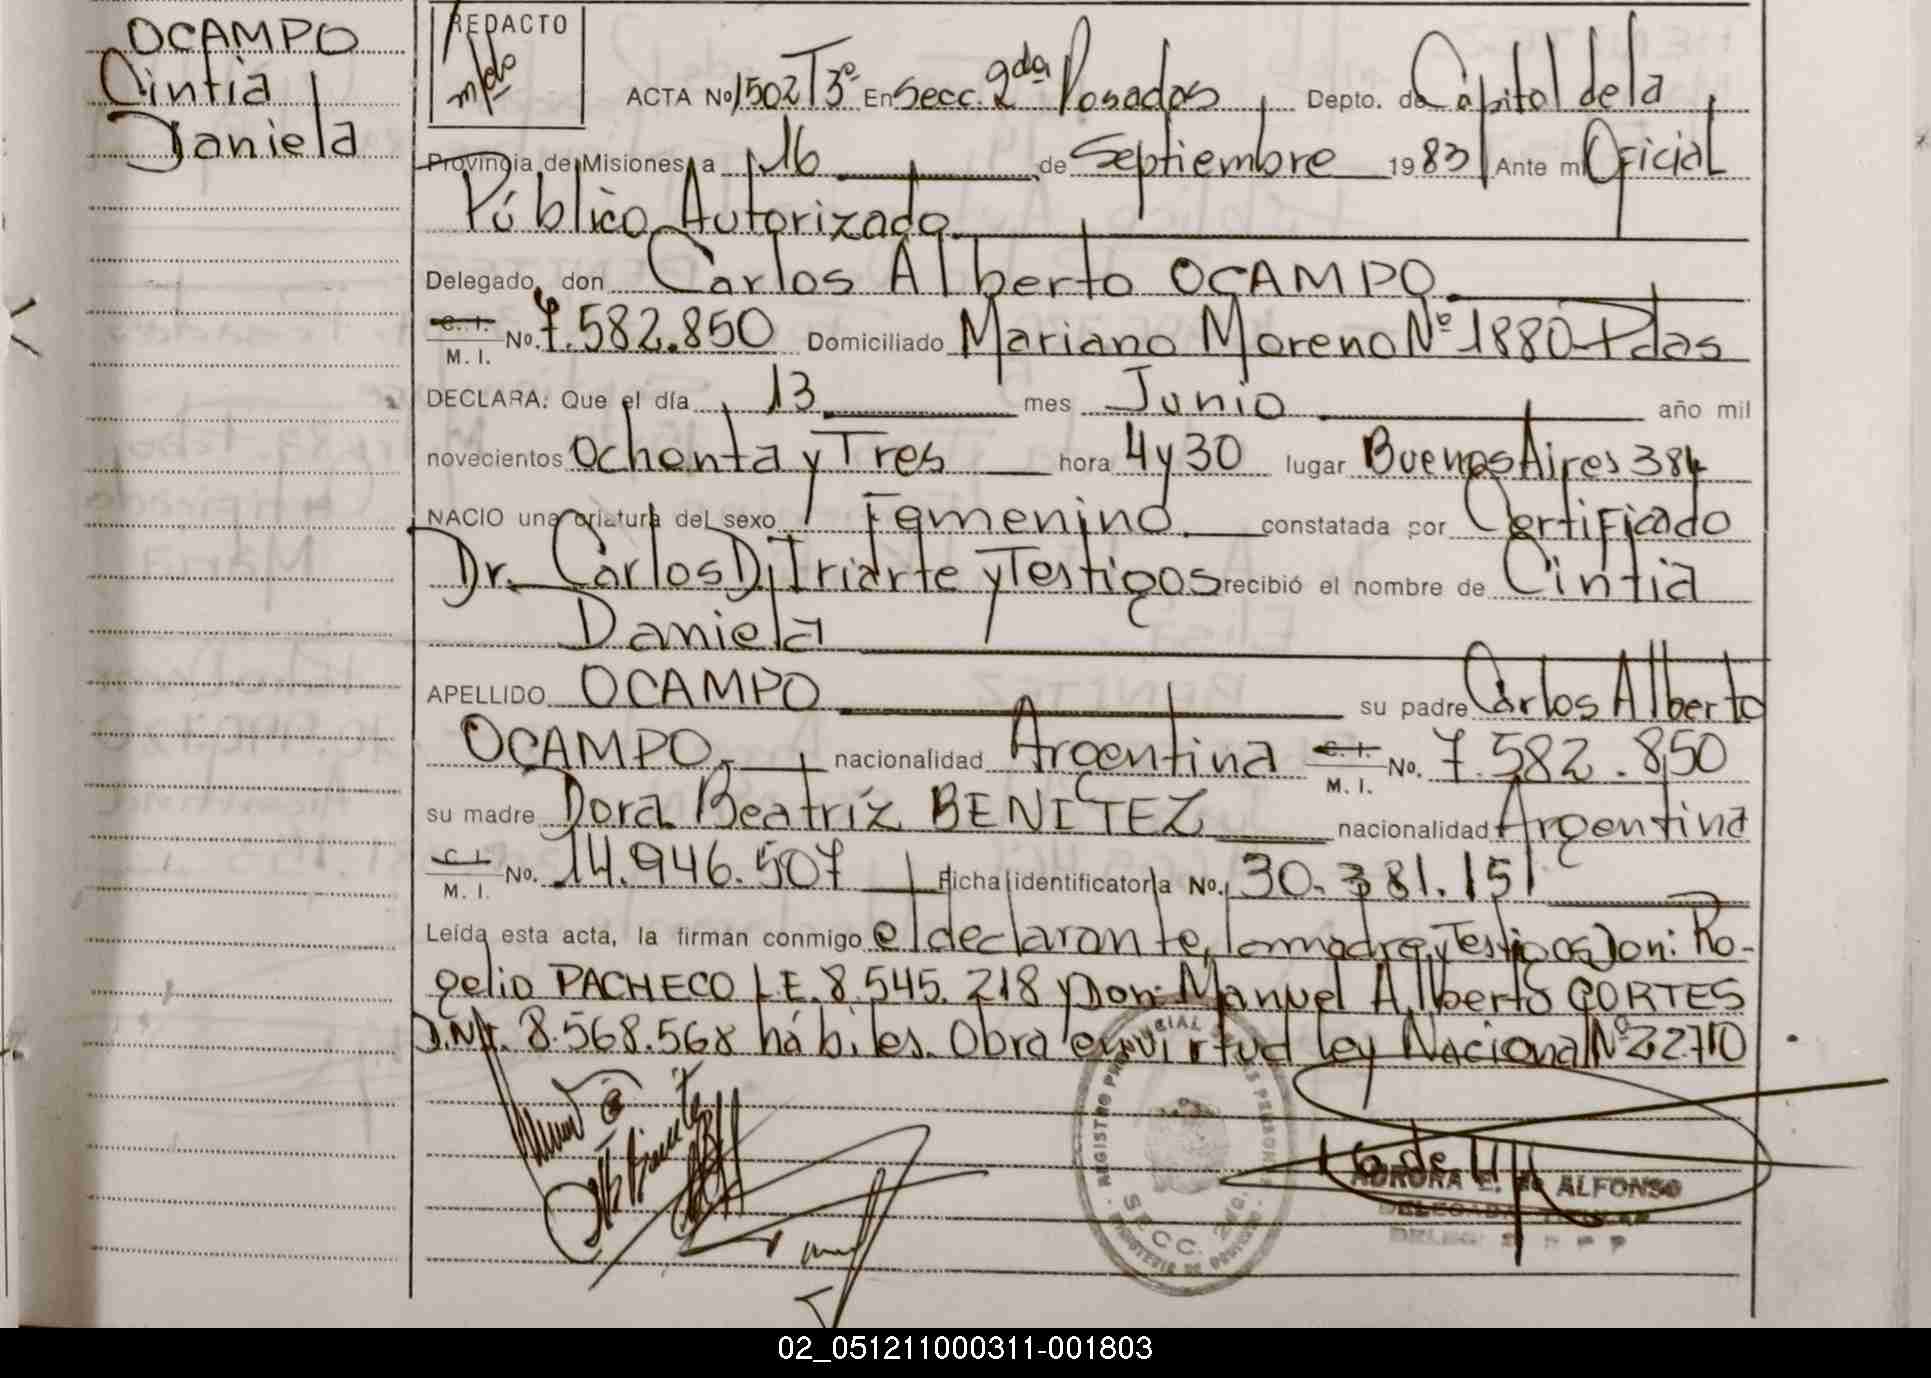 OCAMPO
Cintia
Daniela
REDACTO
ACTA Nº 1502 T3º En Secc. 2da Posadas, Depto. de Capital de la
Provincia de Misiones, a 16 de Septiembre 1983 Ante mi Oficial
Público Autorizado
Delegado, don Carlos Alberto OCAMPO
C. I. M. I. No. 7.582.850 Domiciliado Mariano Moreno Nº 1880-Pdas
DECLARA: Que el día 13 mes Junio año mil
novecientos ochenta y Tres hora 4 y 30 lugar Buenos Aires 384
NACIO una criatura del sexo Femenino constatada por Certificado
Dr. Carlos D. Iriarte y Testigos recibió el nombre de Cintia
Daniela
APELLIDO OCAMPO su padre Carlos Alberto
OCAMPO nacionalidad Argentina C. I. M. I. No. 7.582.850
su madre Dora Beatríz BENITEZ nacionalidad Argentina
C. I. M. I. No. 14.946.507 Ficha identificatoria No. 30.381.151
Leída esta acta, la firman conmigo el declarante, la madre y Testigos Don: Ro-
gelio PACHECO L.E. 8.545.218 y Don: Manuel Alberto CORTES
D.N.I. 8.568.568 hábiles. Obra en virtud ley Nacional Nº 22710
REGISTRO PROVINCIAL DE LAS PERSONAS
SECC. 2da.
AURORA E. de ALFONSO
DELEGADA TITULAR
02_051211000311-001803